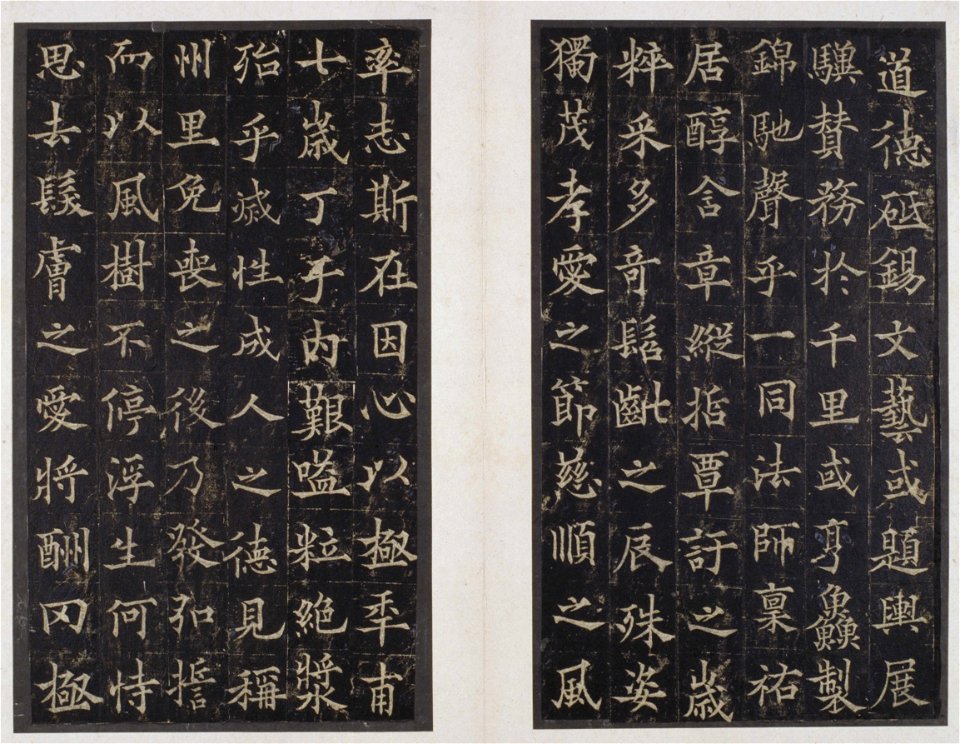 道德砥錫文藝或題輿展
驥贊務於千里或亨鱻製
錦馳聲乎一同法師稟祐
居醇含章縱哲覃訏之歲
粹采多奇髫齔之辰殊姿
獨茂孝愛之節慈順之風
率志斯在因心以極年甫
七歲丁于內艱嗌粒絕漿
殆乎滅性成人之德見稱
州里免喪之後乃發弘誓
而以風樹不停浮生何恃
思去髮膚之愛將酬罔極